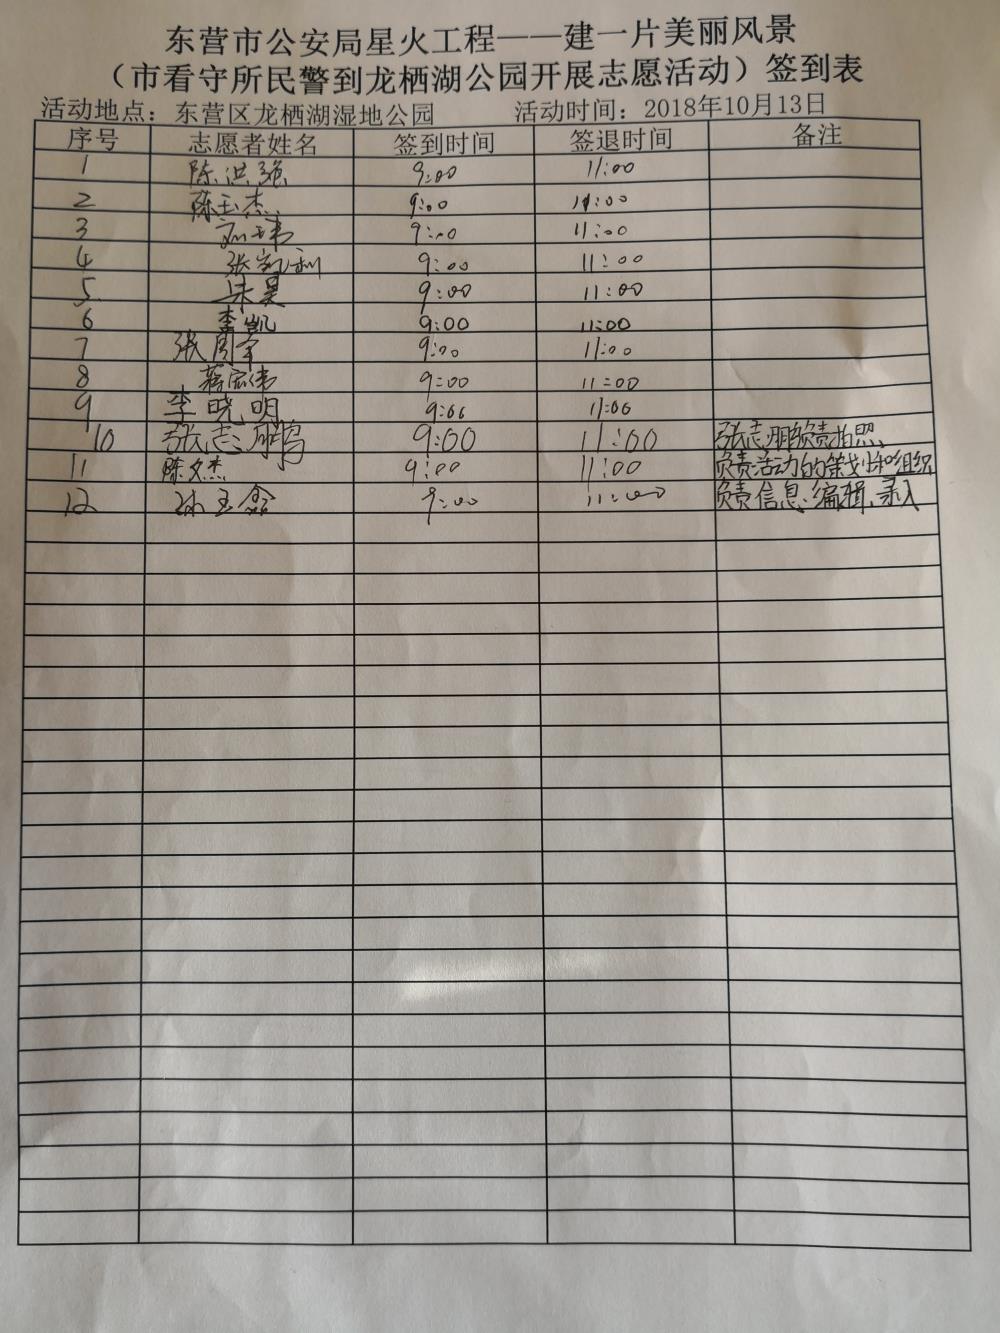 东营市公安局星火工程——建一片美丽风景
（市看守所民警到龙栖湖公园开展志愿活动）签到表
活动地点：东营区龙栖湖湿地公园 活动时间：2018年10月13日
序号 志愿者姓名 签到时间 签退时间 备注
1 陈洪强 9:00 11:00
2 陈玉杰 9:00 11:00
3 9:00 11:00
4 张凯利 9:00 11:00
5 朱昊 9:00 11:00
6 李凯 9:00 11:00
7 张周奎 9:00 11:00
8 蒋宏伟 9:00 11:00
9 李晓明 9:00 11:00
10 张志鹏 9:00 11:00 张志鹏负责拍照
11 陈文杰 9:00 11:00 负责活动的策划和组织
12 孙玉鑫 9:00 11:00 负责信息编辑、录入